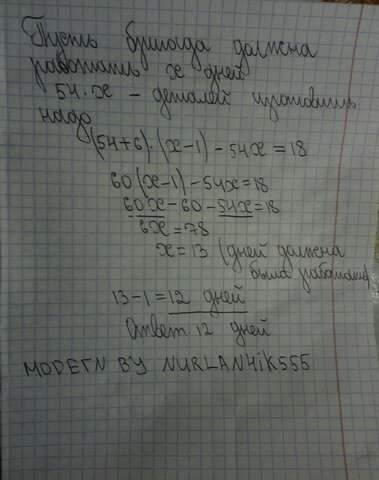 Пусть бригада должна
работать x дней
54·x - деталей изготовить
надо
(54+6)·(x-1)-54x=18
60(x-1)-54x=18
60x-60-54x=18
6x=78
x=13 (дней должна
была работать)
13-1=12 дней
Ответ 12 дней
MODETN BY NURLAN4iK555